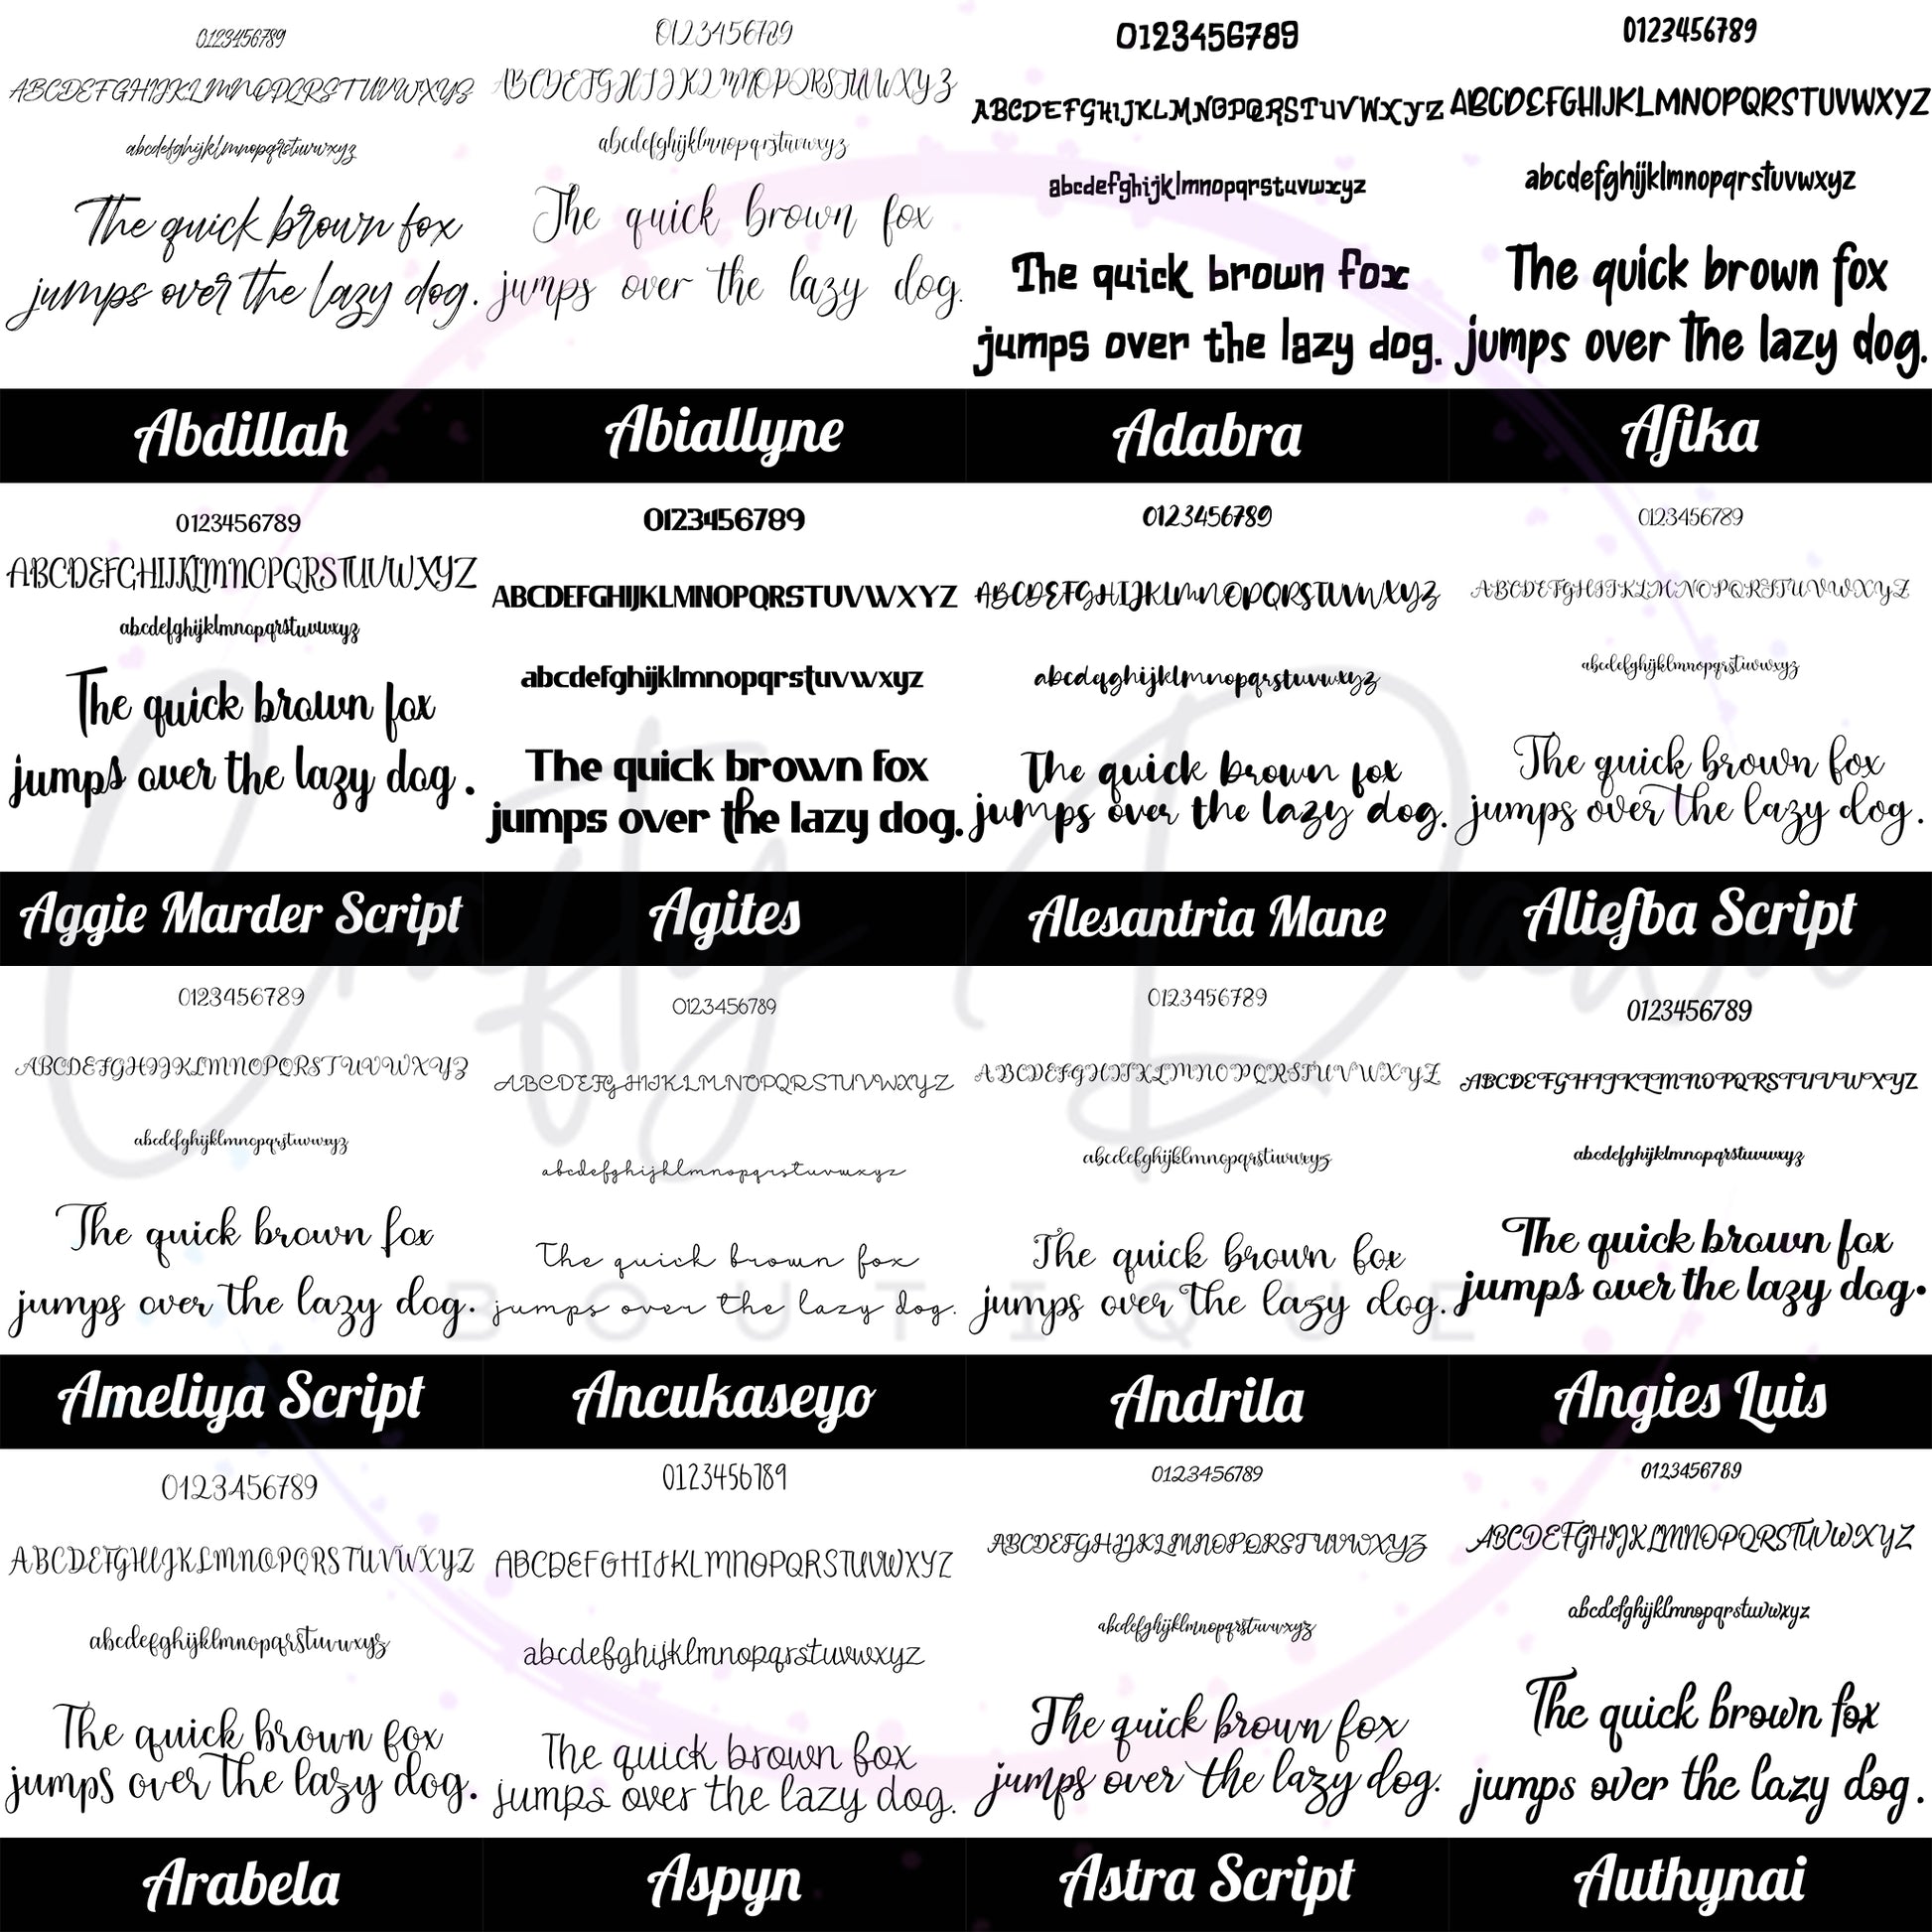 0123456789
ABCDEFGHIJKLMNOPQRSTUVWXYZ
abcdefghijklmnopqrstuvwxyz
The quick brown fox
jumps over the lazy dog.
Abdillah
0123456789
ABCDEFGHIJKLMNOPQRSTUVWXYZ
abcdefghijklmnopqrstuvwxyz
The quick brown fox
jumps over the lazy dog.
Abiallyne
0123456789
ABCDEFGHIJKLMNOPQRSTUVWXYZ
abcdefghijklmnopqrstuvwxyz
The quick brown fox
jumps over the lazy dog.
Adabra
0123456789
ABCDEFGHIJKLMNOPQRSTUVWXYZ
abcdefghijklmnopqrstuvwxyz
The quick brown fox
jumps over the lazy dog.
Afika
0123456789
ABCDEFGHIJKLMNOPQRSTUVWXYZ
abcdefghijklmnopqrstuvwxyz
The quick brown fox
jumps over the lazy dog.
Aggie Marder Script
0123456789
ABCDEFGHIJKLMNOPQRSTUVWXYZ
abcdefghijklmnopqrstuvwxyz
The quick brown fox
jumps over the lazy dog.
Agites
0123456789
ABCDEFGHIJKLMNOPQRSTUVWXYZ
abcdefghijklmnopqrstuvwxyz
The quick brown fox
jumps over the lazy dog.
Alesantria Mane
0123456789
ABCDEFGHIJKLMNOPQRSTUVWXYZ
abcdefghijklmnopqrstuvwxyz
The quick brown fox
jumps over the lazy dog.
Aliefba Script
0123456789
ABCDEFGHIJKLMNOPQRSTUVWXYZ
abcdefghijklmnopqrstuvwxyz
The quick brown fox
jumps over the lazy dog.
Ameliya Script
0123456789
ABCDEFGHIJKLMNOPQRSTUVWXYZ
abcdefghijklmnopqrstuvwxyz
The quick brown fox
jumps over the lazy dog.
Ancukaseyo
0123456789
ABCDEFGHIJKLMNOPQRSTUVWXYZ
abcdefghijklmnopqrstuvwxyz
The quick brown fox
jumps over the lazy dog.
Andrila
0123456789
ABCDEFGHIJKLMNOPQRSTUVWXYZ
abcdefghijklmnopqrstuvwxyz
The quick brown fox
jumps over the lazy dog.
Angies Luis
0123456789
ABCDEFGHIJKLMNOPQRSTUVWXYZ
abcdefghijklmnopqrstuvwxyz
The quick brown fox
jumps over the lazy dog.
Arabela
0123456789
ABCDEFGHIJKLMNOPQRSTUVWXYZ
abcdefghijklmnopqrstuvwxyz
The quick brown fox
jumps over the lazy dog.
Aspyn
0123456789
ABCDEFGHIJKLMNOPQRSTUVWXYZ
abcdefghijklmnopqrstuvwxyz
The quick brown fox
jumps over the lazy dog.
Astra Script
0123456789
ABCDEFGHIJKLMNOPQRSTUVWXYZ
abcdefghijklmnopqrstuvwxyz
The quick brown fox
jumps over the lazy dog.
Authynai
Crafty Dawn
BOUTIQUE